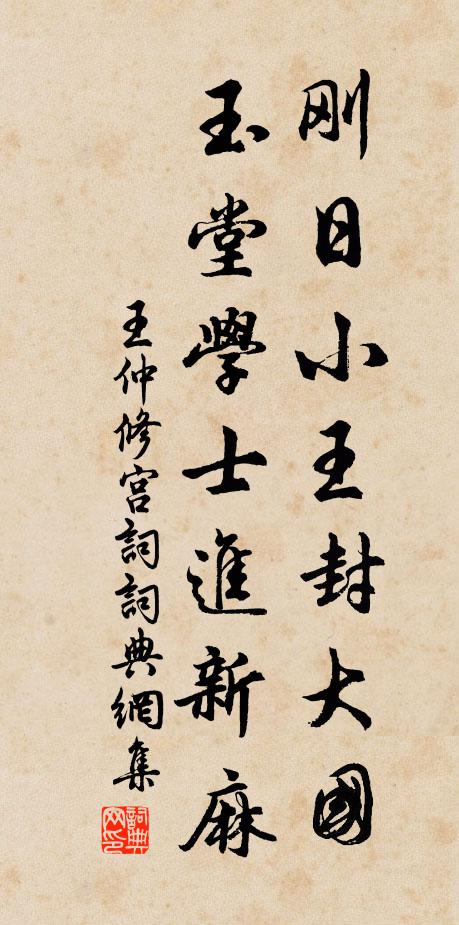 刚日小王封大國
玉堂學士進新麻
王仲修宫詞詞典網集
詞典网印